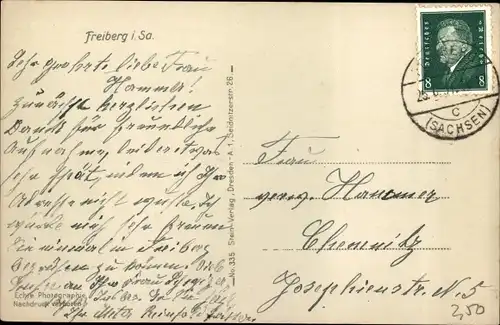 Freiberg i. Sa.
Sehr geehrte liebe Frau
Hammer!
Zunächst herzlichen
Dank für freundliche
Aufnahme, leider etwas
sehr spät, indem ich Ihre
Adresse nicht wusste, ich
würde mich sehr freuen
Sie einmal in Freiberg
begrüssen zu können.
Echte Photographie
Nachdruck verboten
No. 335 Stein-Verlag, Dresden-A. 1, Seidnitzerstr. 26
Deutsches Reich
8 8
C
(SACHSEN)
Frau
verw. Hammer
Chemnitz
Josephienstr. N. 5
2,50